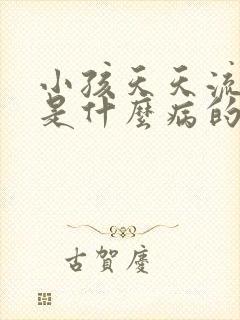 小孩天天流
是什麼病的
古賀慶